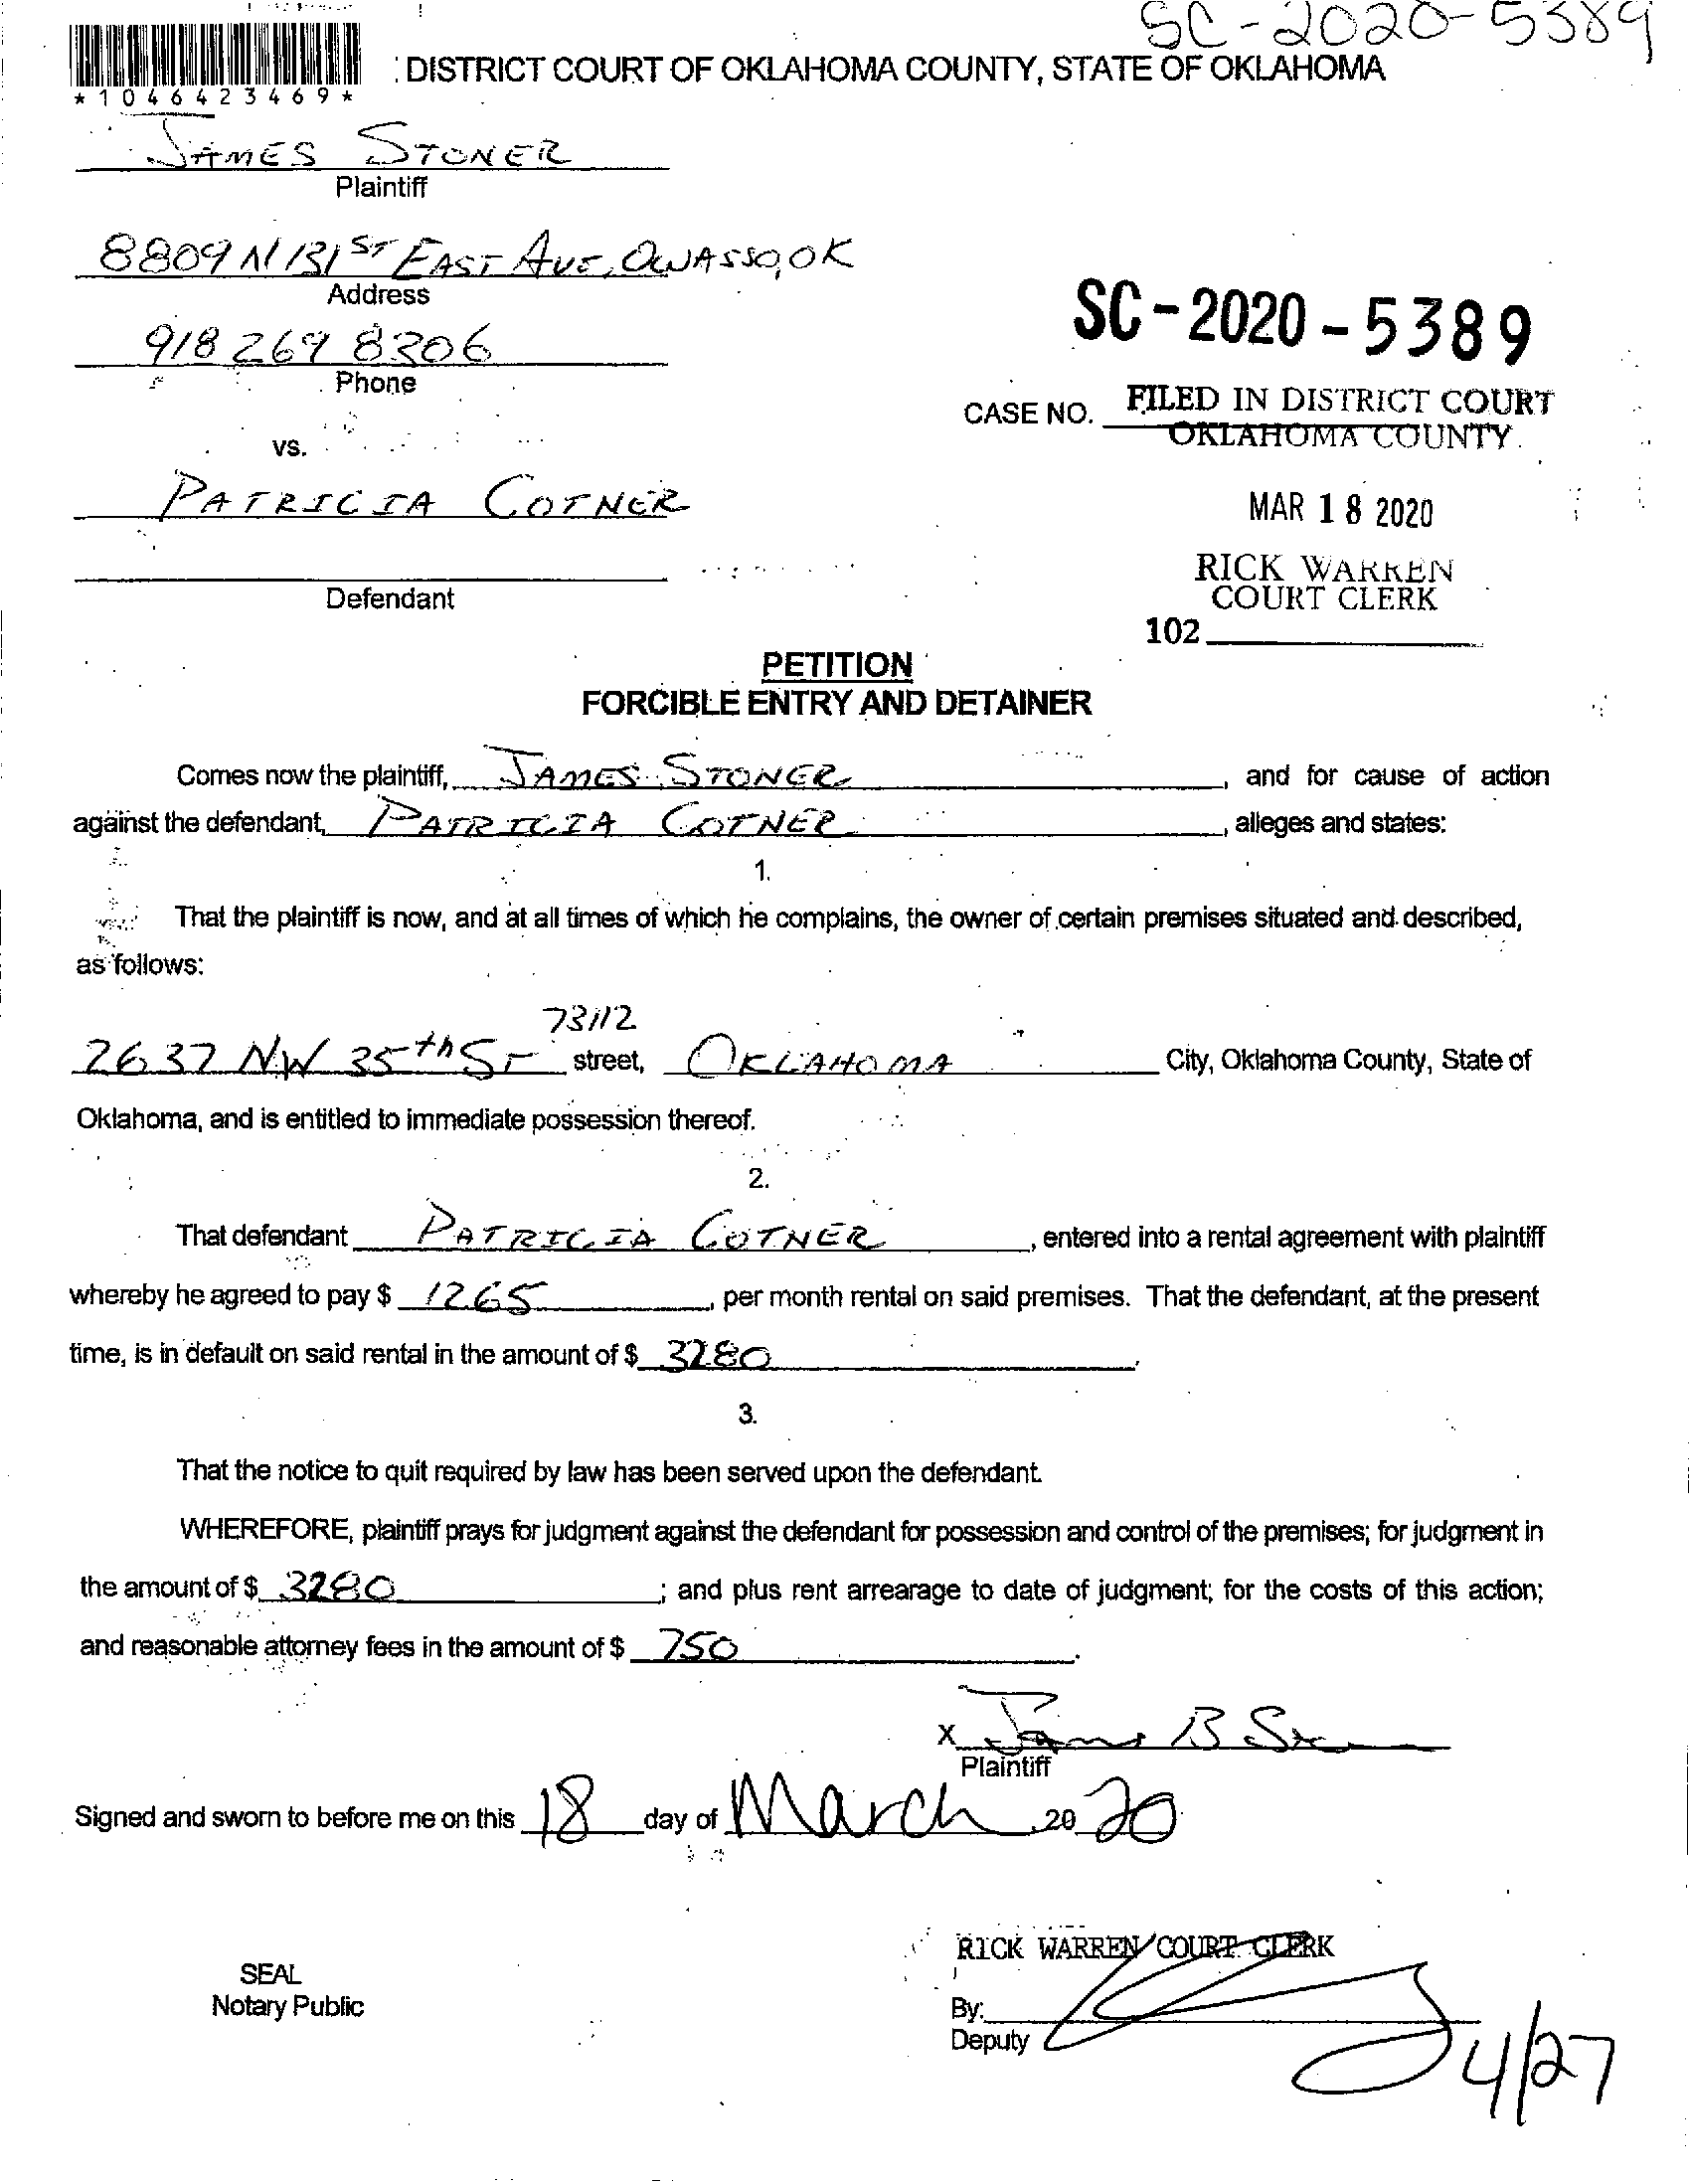 SC-2020-5389
: DISTRICT COURT OF OKLAHOMA COUNTY, STATE OF OKLAHOMA
* 1 0 4 6 4 2 3 4 6 9 *
JAMES STONER
Plaintiff
8809 N 131ST EAST AVE, OWASSO, OK
Address
918 269 8206
Phone
SC-2020-5389
CASE NO. FILED IN DISTRICT COURT
OKLAHOMA COUNTY
vs.
PATRICIA COTNER
MAR 18 2020
RICK WARREN
COURT CLERK
Defendant
102
PETITION
FORCIBLE ENTRY AND DETAINER
Comes now the plaintiff, JAMES STONER, and for cause of action
against the defendant, PATRICIA COTNER, alleges and states:
1.
That the plaintiff is now, and at all times of which he complains, the owner of certain premises situated and described,
as follows:
73112
2637 NW 35th ST street, OKLAHOMA City, Oklahoma County, State of
Oklahoma, and is entitled to immediate possession thereof.
2.
That defendant PATRICIA COTNER, entered into a rental agreement with plaintiff
whereby he agreed to pay $ 1265, per month rental on said premises. That the defendant, at the present
time, is in default on said rental in the amount of $ 3280.
3.
That the notice to quit required by law has been served upon the defendant.
WHEREFORE, plaintiff prays for judgment against the defendant for possession and control of the premises; for judgment in
the amount of $ 3280; and plus rent arrearage to date of judgment; for the costs of this action;
and reasonable attorney fees in the amount of $ 750.
X James B S
Plaintiff
Signed and sworn to before me on this 18 day of March, 20 20
RICK WARREN COURT CLERK
SEAL
Notary Public
By:
Deputy
4/27